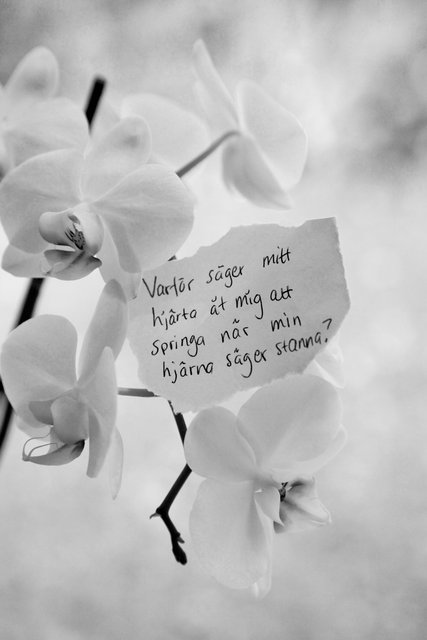 Varför säger mitt
hjärta åt mig att
springa när min
hjärna säger stanna?